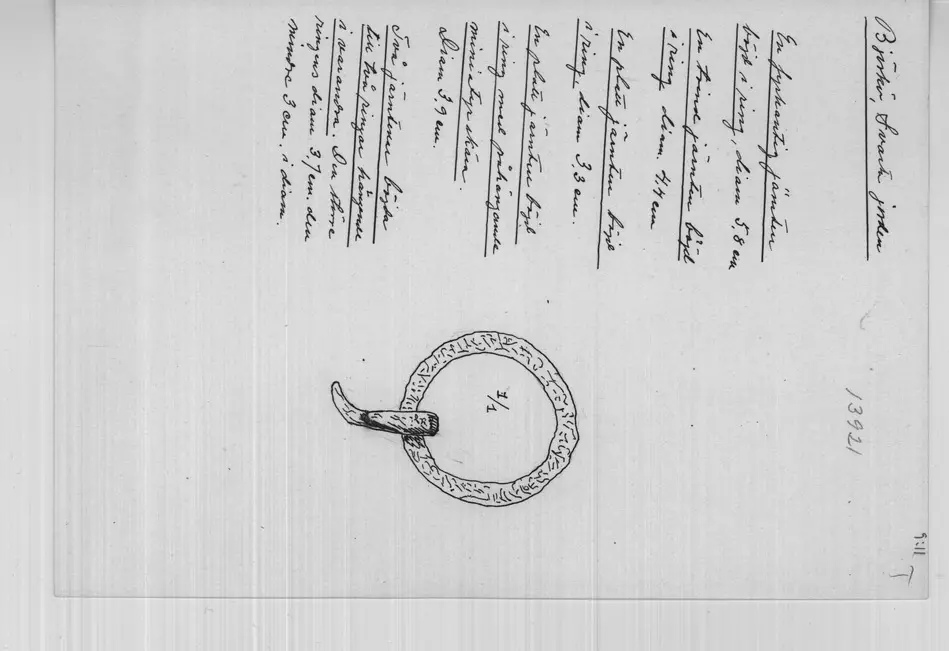 Björkö, Svarta jorden
13921
9:11 T
En fyrkantig järnten
böjd i ring, diam 5,8 cm
En trind järnten böjd
i ring, diam. 4,4 cm
En platt järnten böjd
i ring, diam 3,3 cm.
En platt järnten böjd
i ring med påhängande
miniatyrskära.
Diam 3,9 cm.
Två järntenar böjda
till två ringar hängande
i varandra. Den större
ringens diam 3,7 cm. den
mindre 3 cm. i diam.
1/1